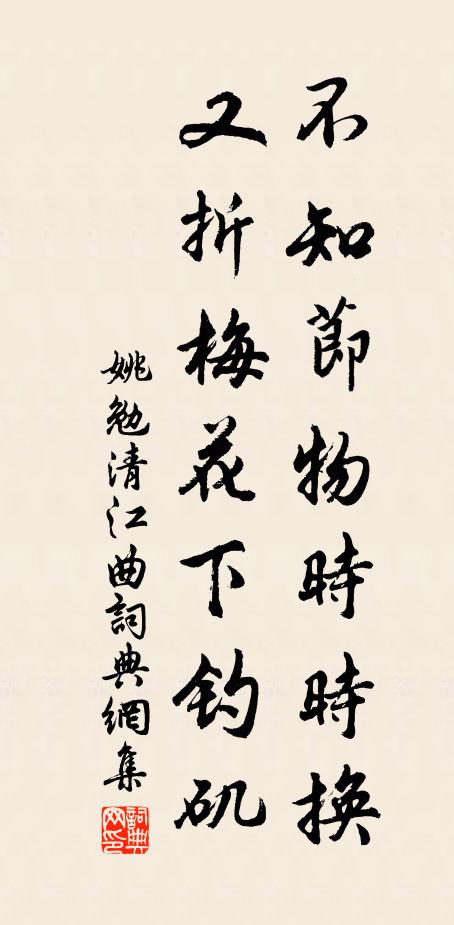 不知節物時時換
又折梅花下釣磯
姚勉清江曲詞典網集
詞典
网印